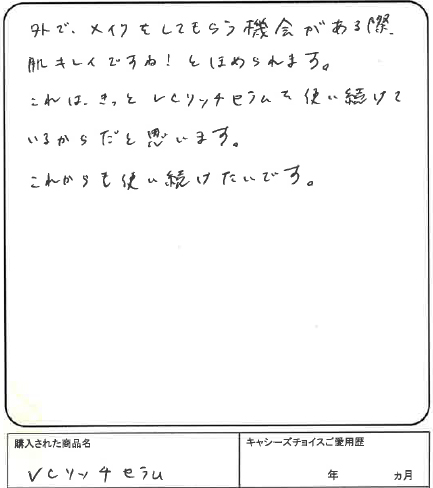 外で、メイクをしてもらう機会がある際、
肌キレイですね！とほめられます。
これは、きっとVCリッチセラムを使い続けて
いるからだと思います。
これからも使い続けたいです。
購入された商品名
キャシーズチョイスご愛用歴
VCリッチセラム
年　カ月